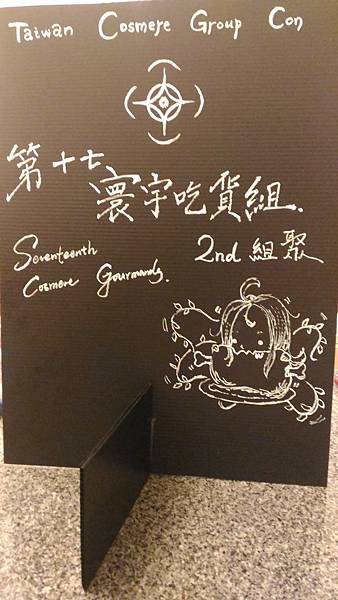 Taiwan Cosmere Group Con
第十七
寰宇吃貨組.
Seventeenth
2nd 組聚
Cosmere Gourmands.